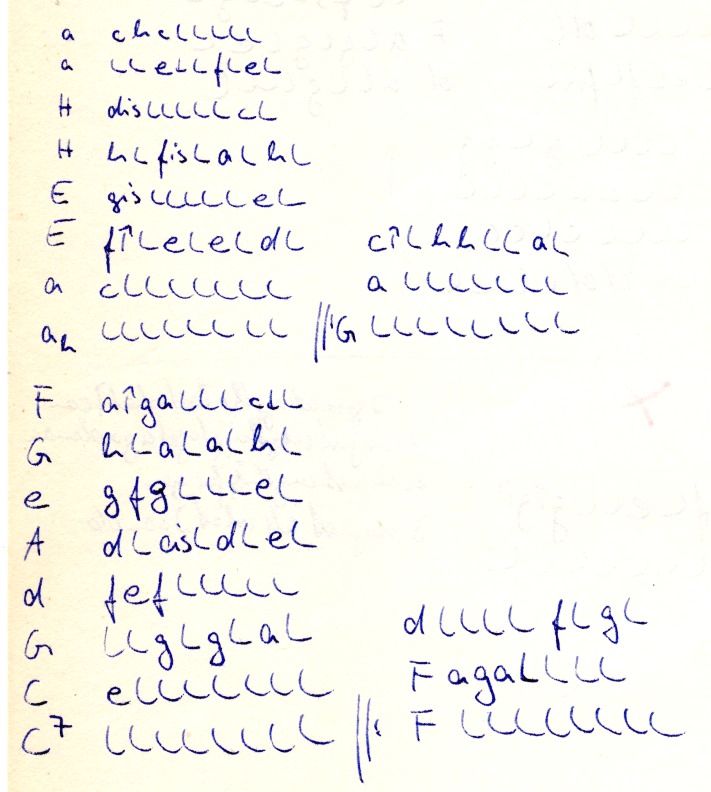 a chcLLLLL
a LLeLLfLeL
H disLLLLLcL
H hLfisLaLhL
E gisLLLLLeL
E f↑LeLeLdL c↑LhhLLaL
a cLLLLLLL aLLLLLLL
a h LLLLLLLL //: G LLLLLLLL
F a↑gaLLLcL
G hLaLaLhL
e gfgLLLeL
A dLcisLdLeL
d fefLLLLL
G LLgLgLaL dLLLLfLgL
C eLLLLLLL F agaLLLL
C7 LLLLLLLL //: F LLLLLLLL